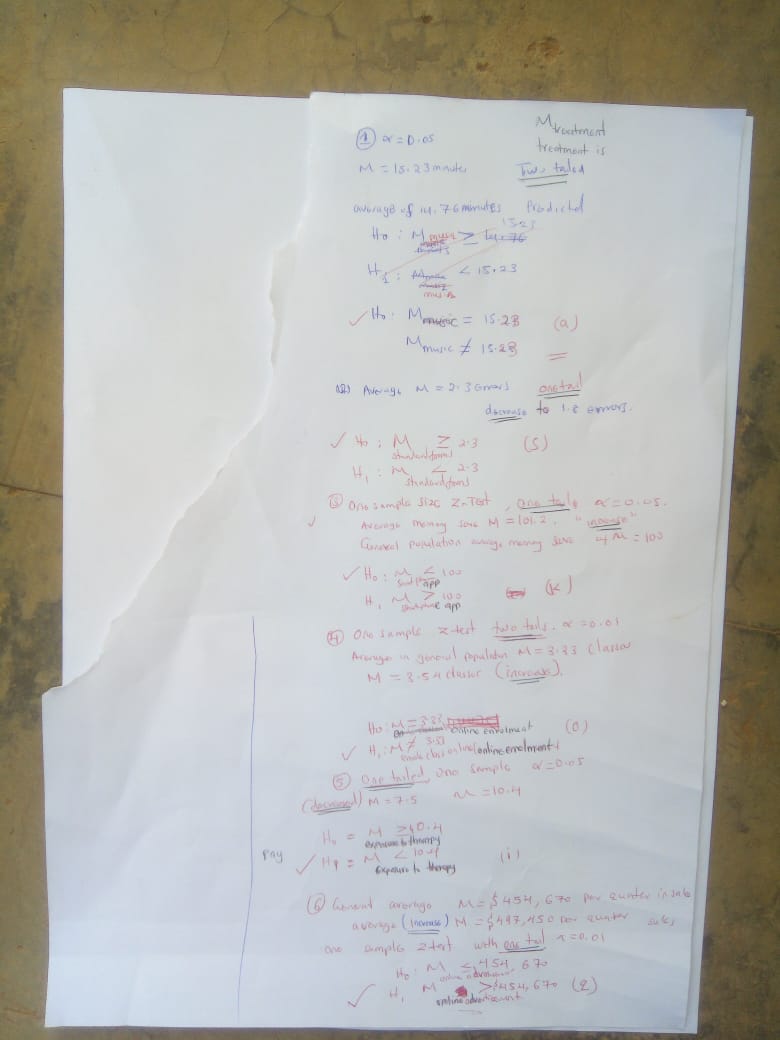 M treatment
treatment is
Two tailed
① α = 0.05
M = 15.23 minutes
average of 14.76 minutes Predicted
15.23
Ho : M music ≥ 14.76
H1 : M music < 15.23
✓ Ho : M music = 15.23 (a)
M music ≠ 15.23
(2) Average M = 2.3 Errors one tail
decrease to 1.8 errors.
✓ Ho : M ≥ 2.3 (S)
standard forms
H1 : M < 2.3
standard forms
③ One sample size Z-Test, one tail, α = 0.05.
✓ Average memory score M = 101.2. "increase"
General population average memory score M = 100
✓ Ho : M ≤ 100
app
H1 M > 100 (K)
app
④ One sample z-test two tails. α = 0.01
Average in general population M = 3.33 classes
M = 3.54 classes (increase).
Ho : M = 3.33 online enrolment (O)
✓ H1 : M ≠ 3.33
(online enrolment)
⑤ One tailed, one sample α = 0.05
(decreased) M = 7.5 M = 10.4
Ho = M ≥ 10.4
exposure to therapy
Pay ✓ H1 = M < 10.4 (i)
exposure to therapy
⑥ General average M = $454,670 per quater in sale
average (increase) M = $497,450 per quater sales
one sample z test with one tail α = 0.01
Ho : M ≤ 454,670
✓ H1 M > $454,670 (2)
online advertisement